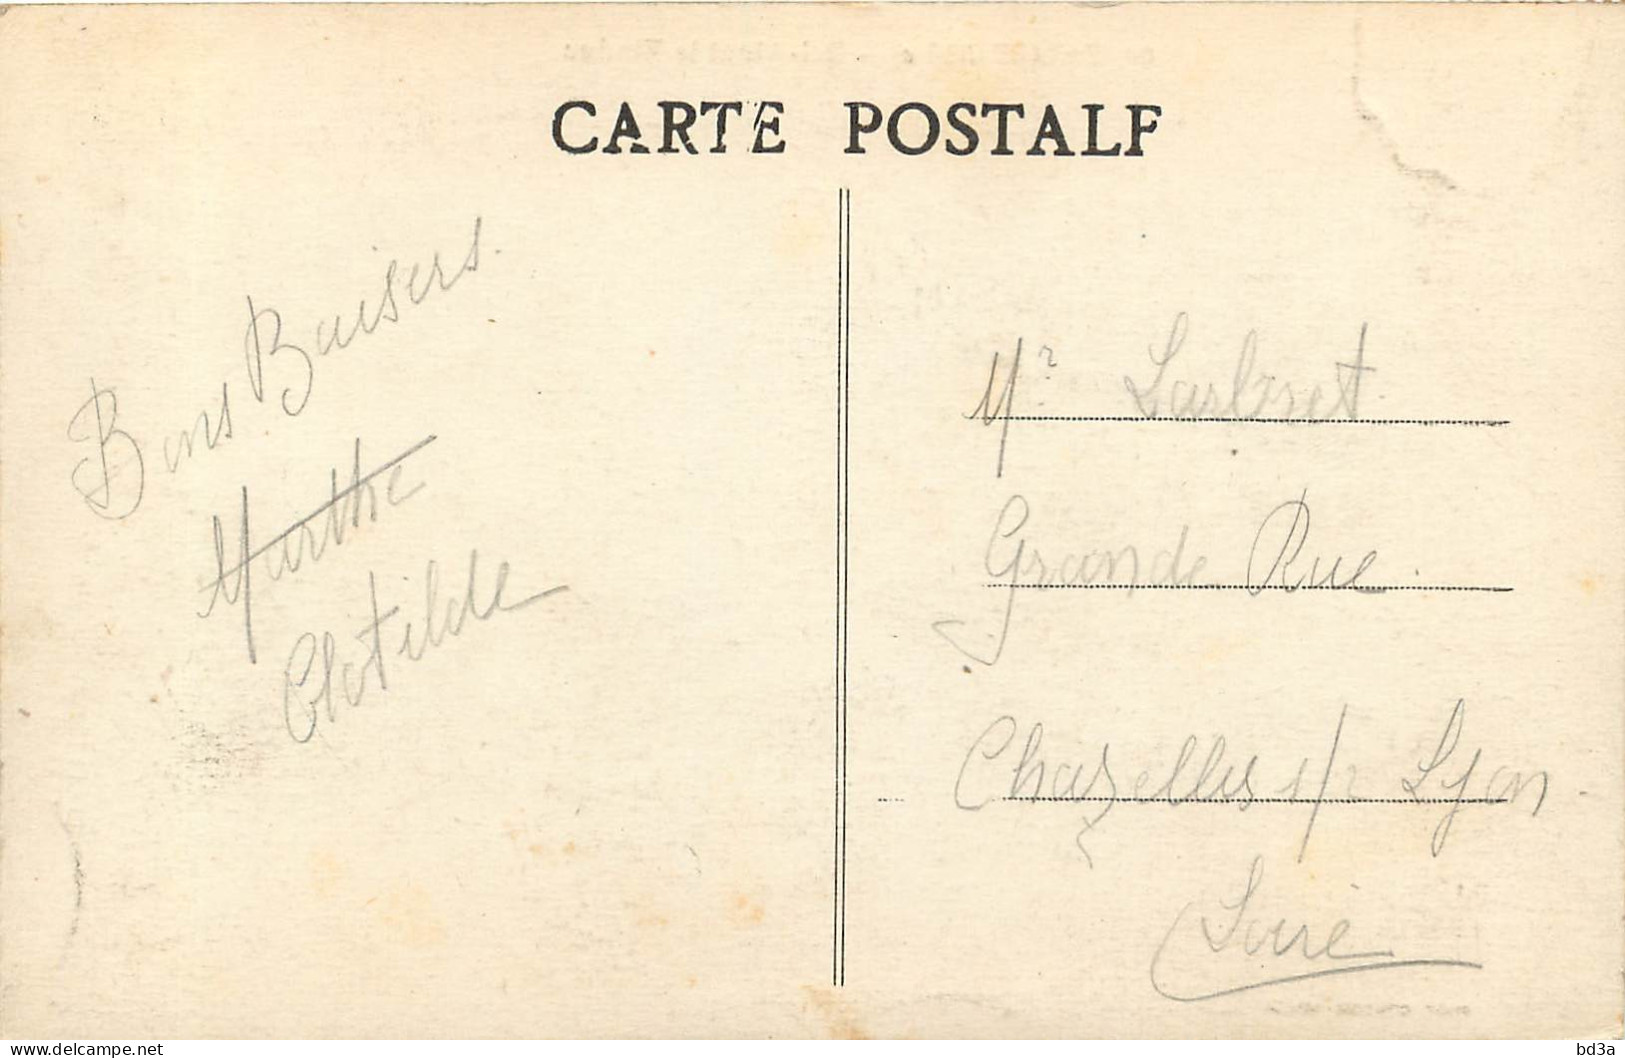 CARTE POSTALE
Bons Baisers.
Marthe
Clotilde
Mr Larbret
Grande Rue.
Chazelles s/r Lyon
Loire
delcampe.net
bd3a